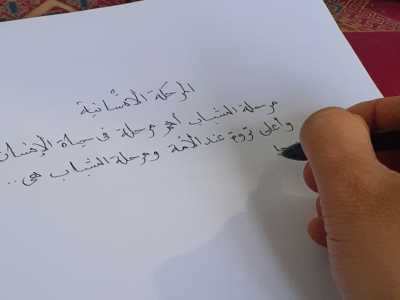 المرحلة الإنشانية
مرحلة الشباب أهم مرحلة في حياة الإنسان
وأعلى ثروة عند الأمة ومرحلة الشباب هي ..